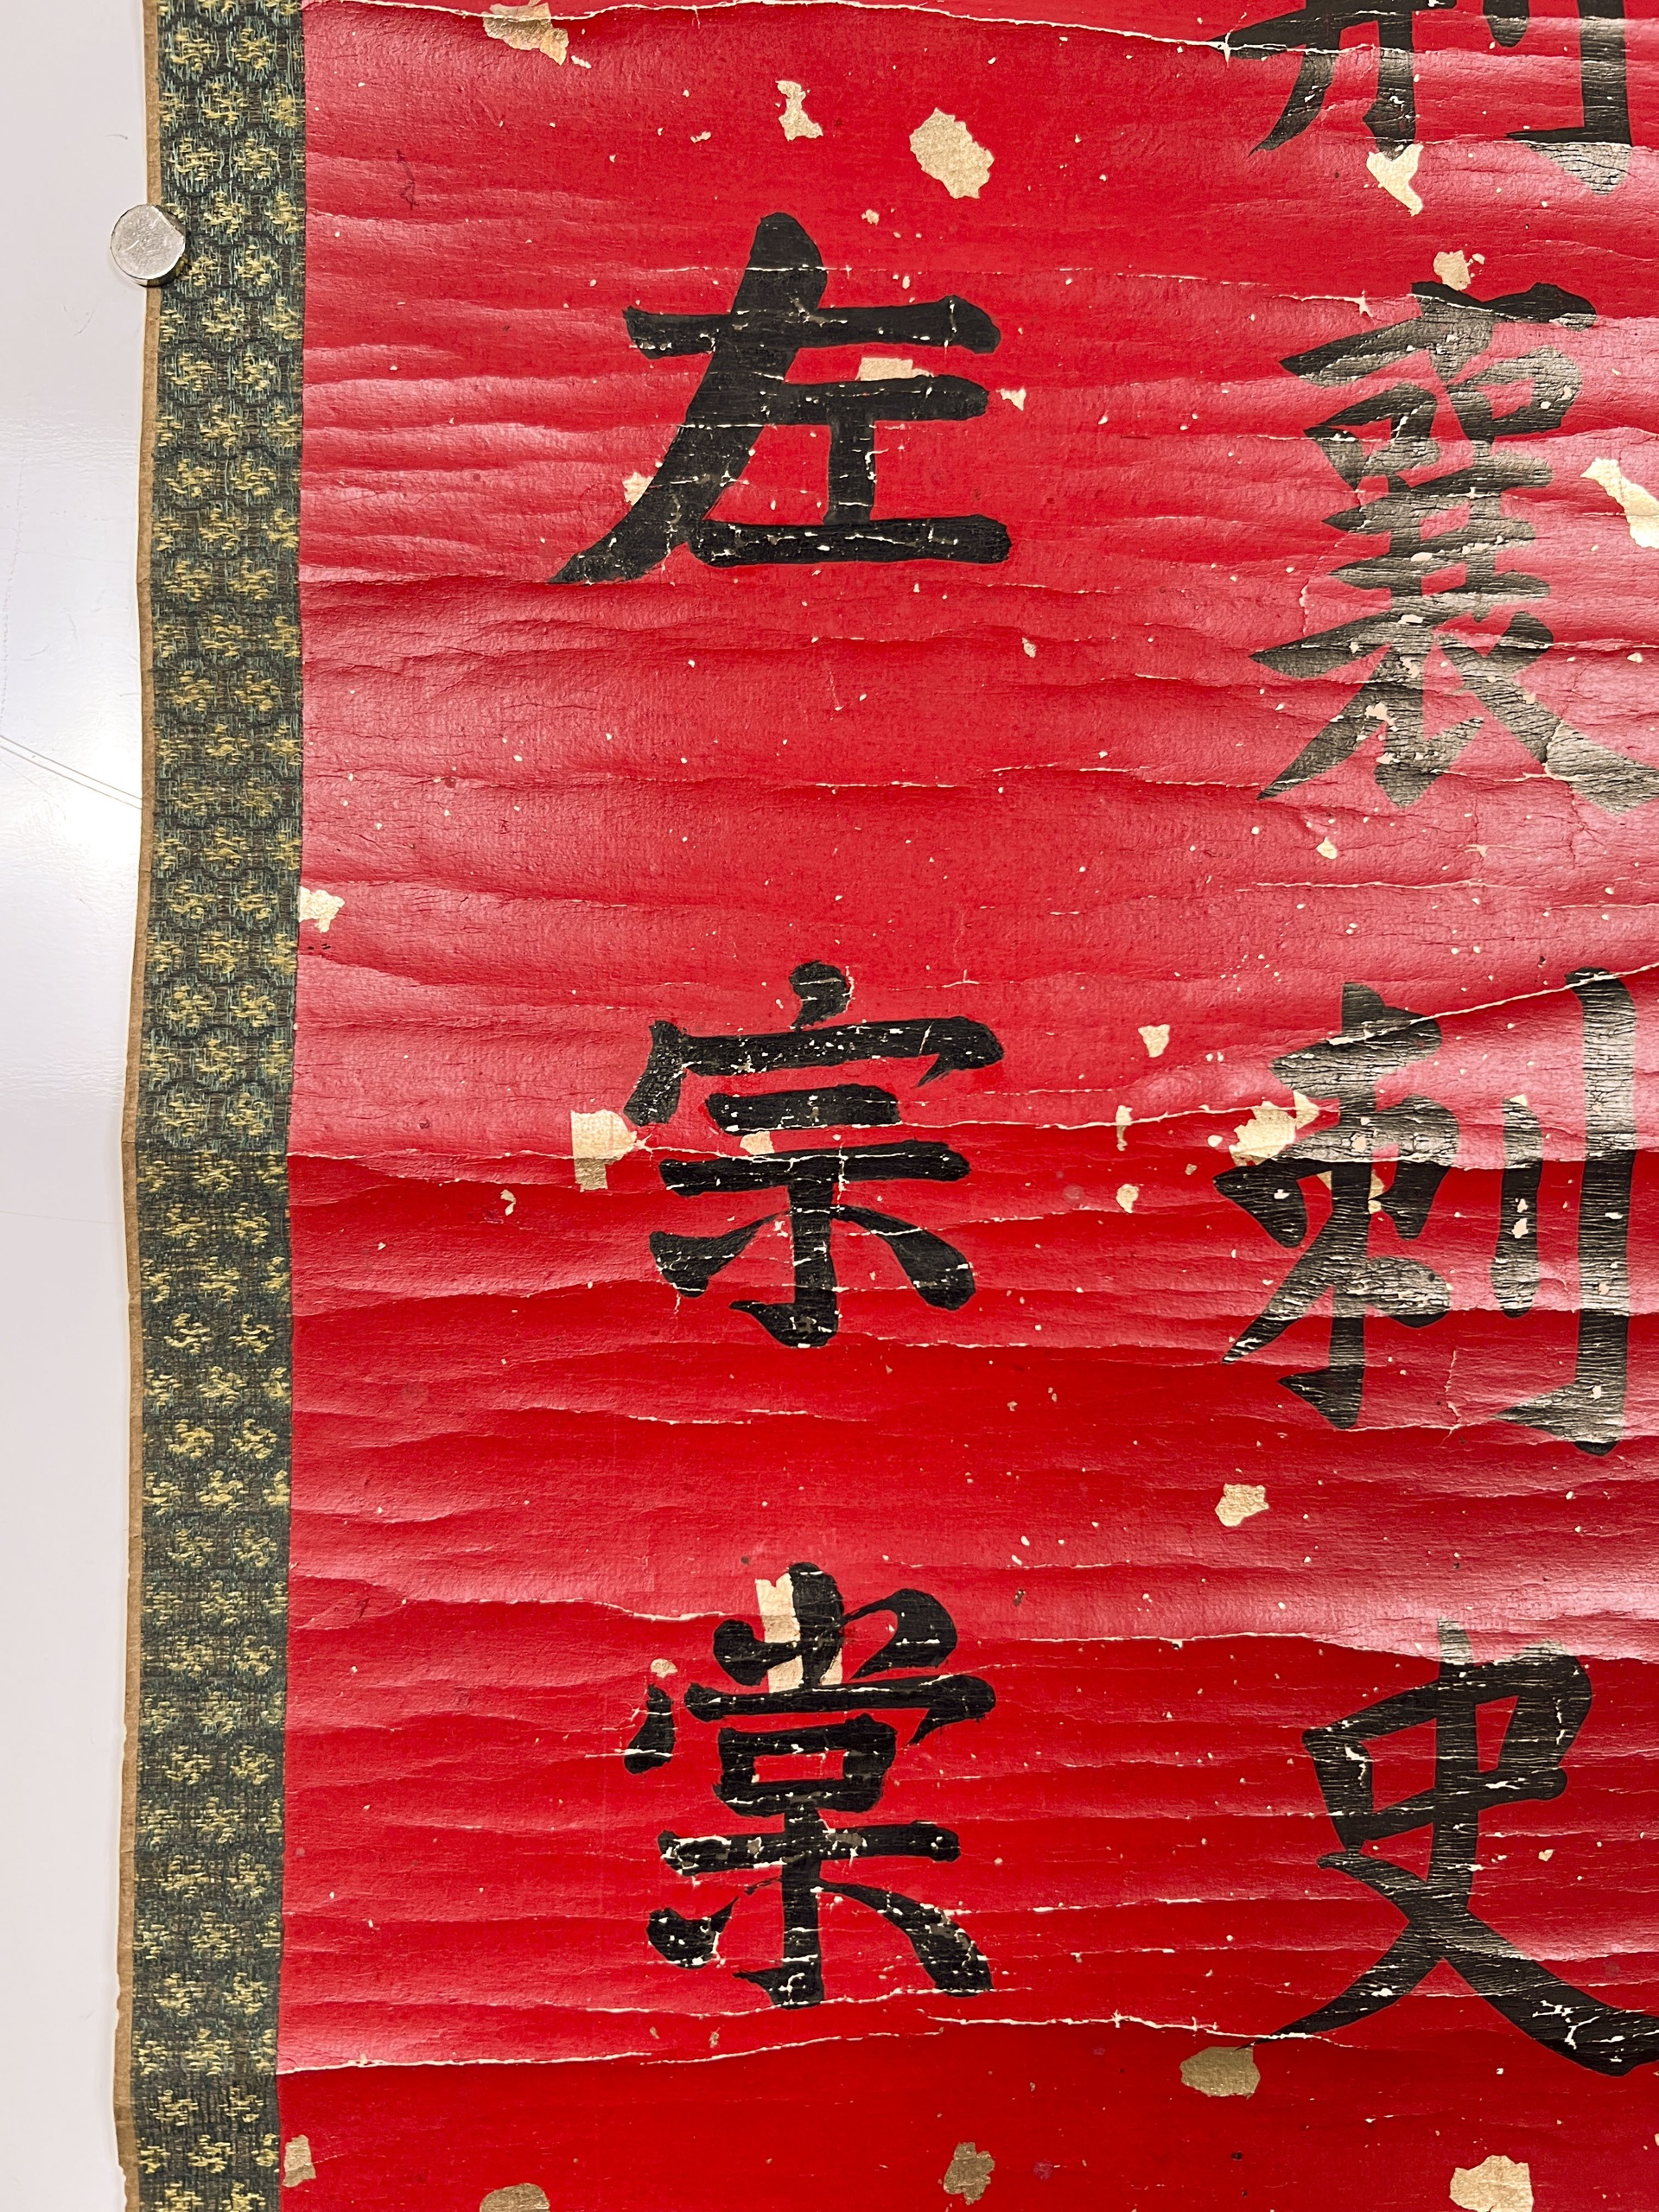 襄刺史
左宗棠